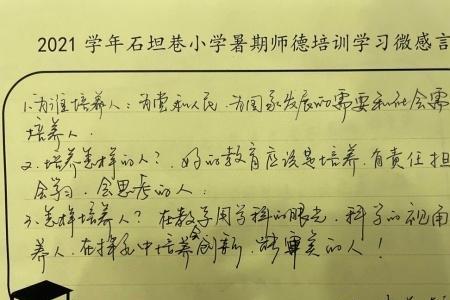 2021 学年石坦巷小学暑期师德培训学习微感言
1.为谁培养人：为党和人民、为国家发展的需要和社会需
培养人.
2.培养怎样的人？好的教育应该是培养有责任担
会学习、会思考的人.
3.怎样培养人？在教学用学科的眼光、科学的视角
养人.在探究中培养会创新、的人！